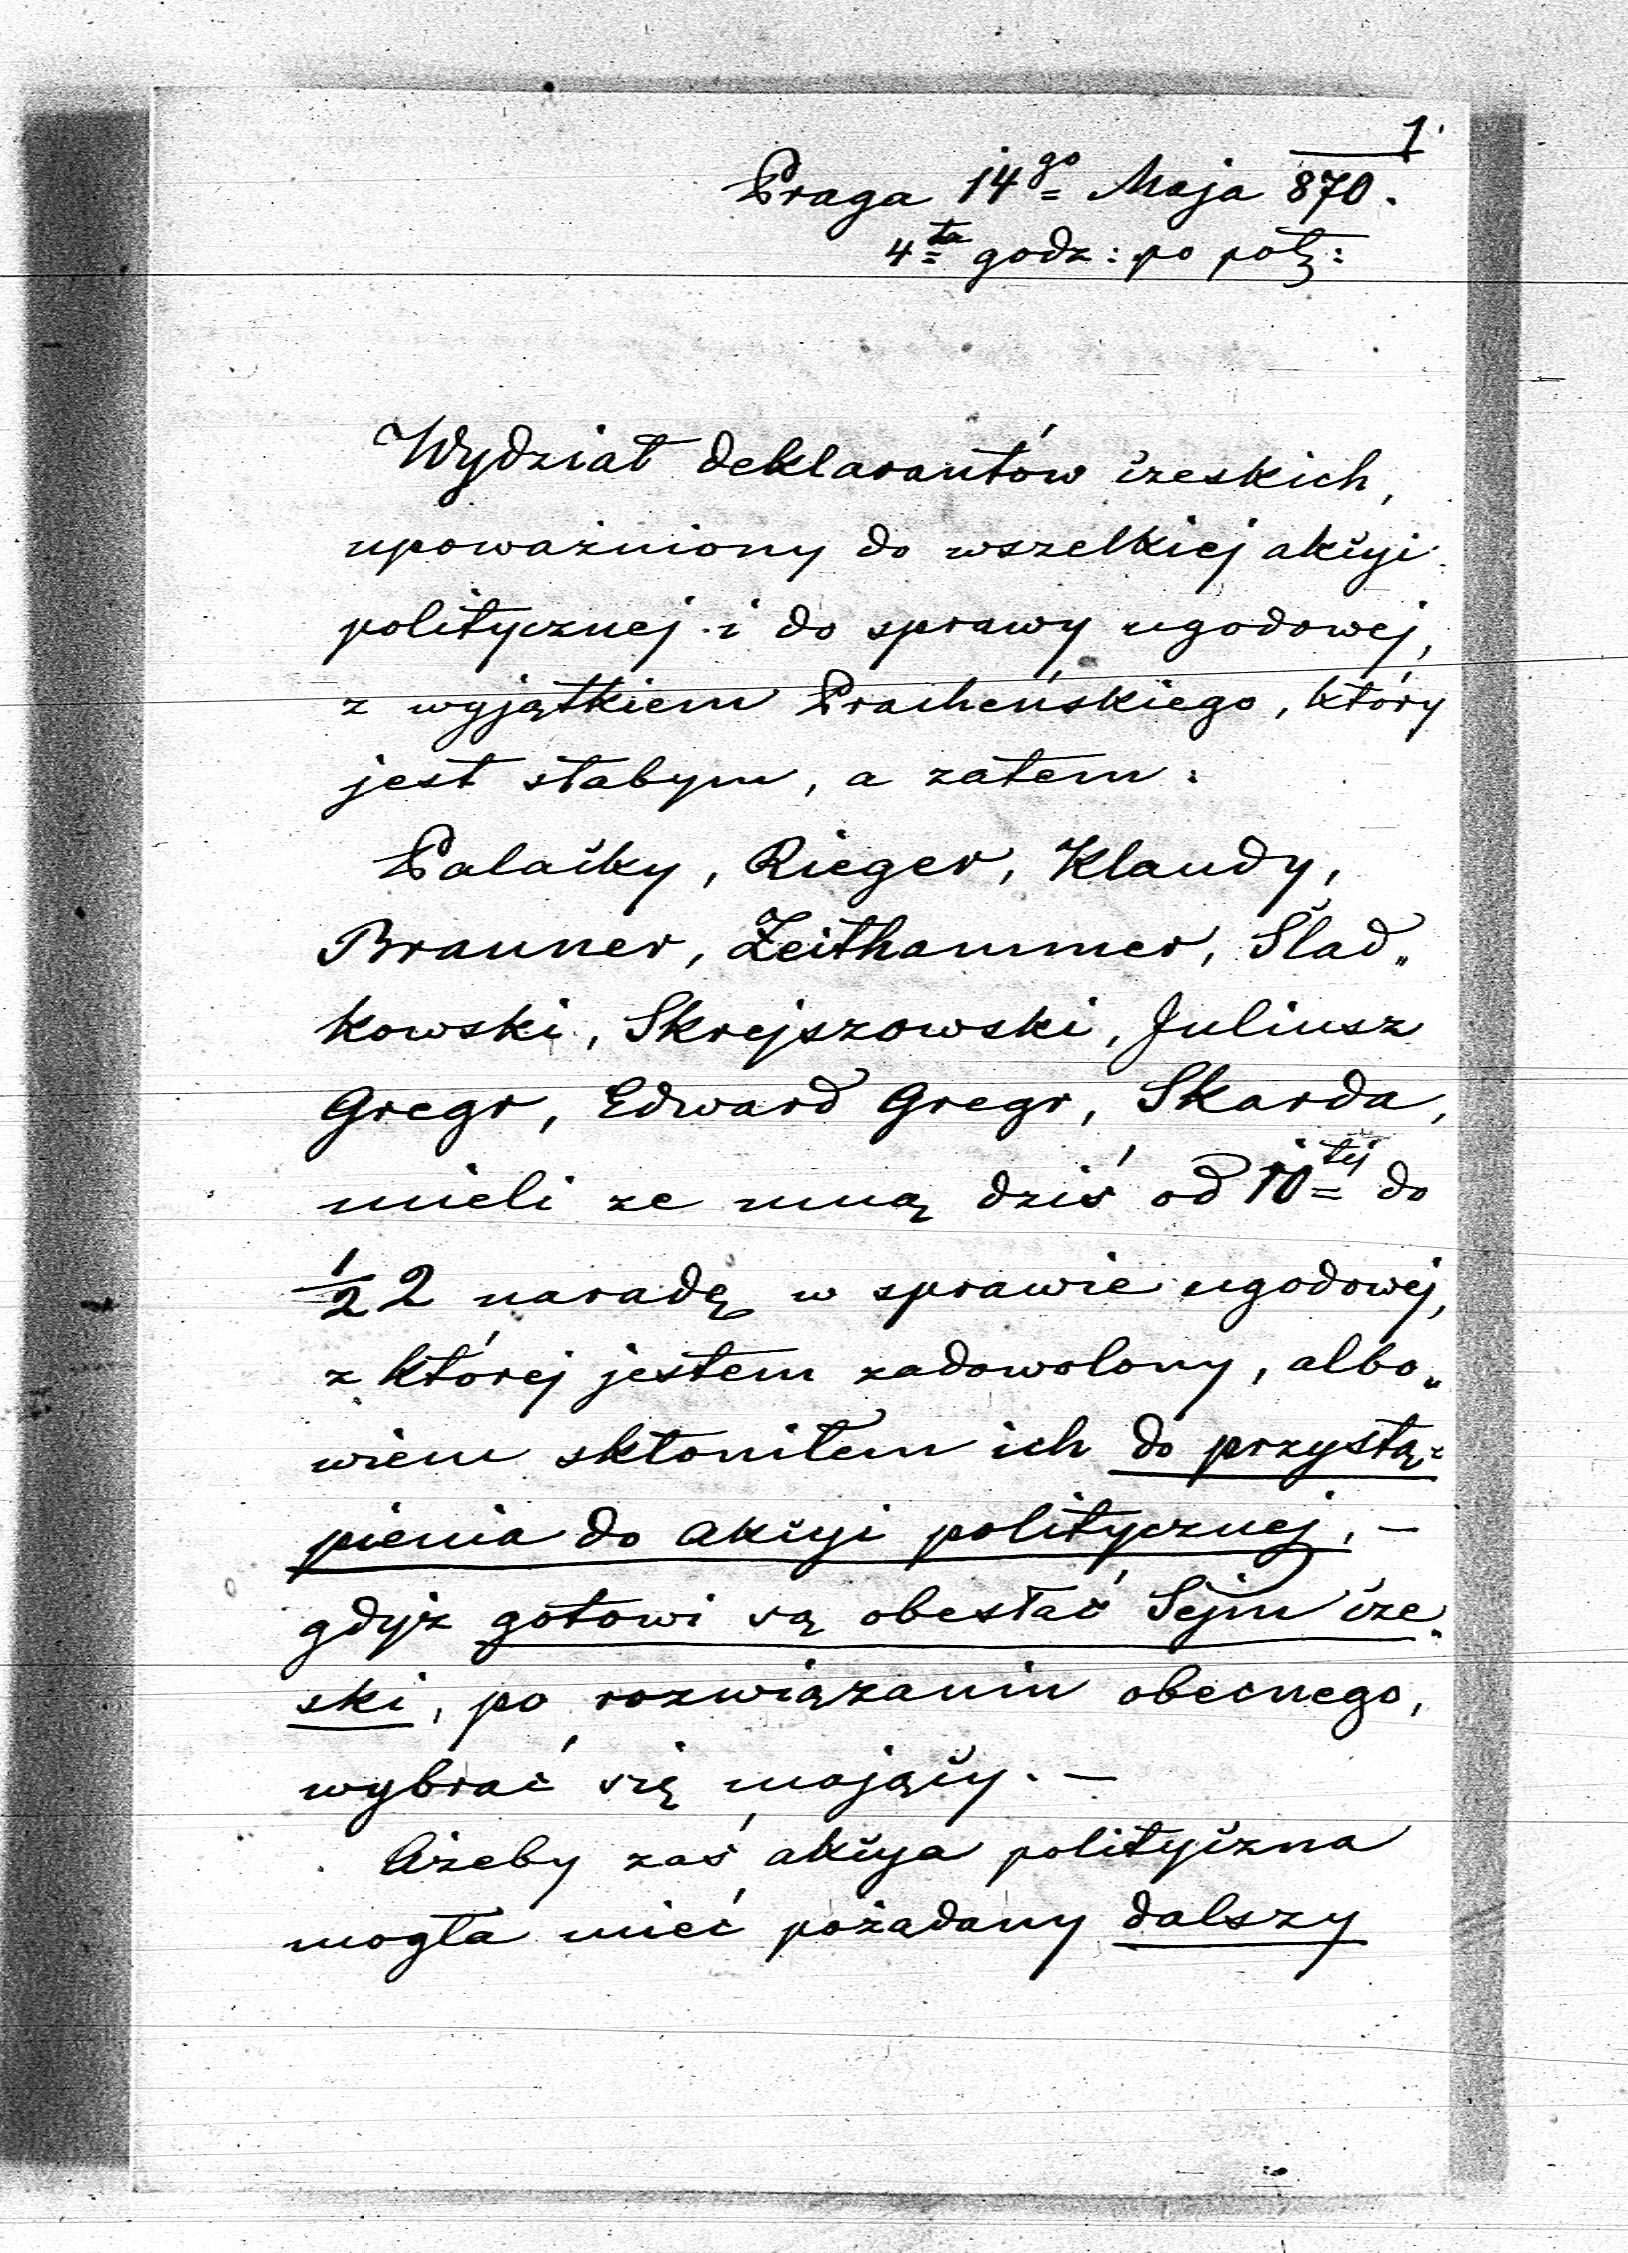 1
Praga 14go Maja 870.
4ta godz: po poł:
Wydział deklarantów czeskich,
upoważniony do wszelkiej akcyi
politycznej i do sprawy ugodowej,
z wyjątkiem Pracheńskiego, który
jest słabym, a zatem:
Palacky, Rieger, Klaudy,
Brauner, Zeithammer, Slad„
kowski, Skrejszowski, Juliusz
Gregr, Edward Gregr, Skarda,
mieli ze mną dziś od 10tej do
1/2 2 naradę w sprawie ugodowej,
z której jestem zadowolony, albo„
wiem skłoniłem ich do przystą=
pienia do akcyi politycznej, —
gdyż gotowi są obesłać Sejm cze„
ski, po rozwiązaniu obecnego,
wybrać się mający. —
Ażeby zaś akcya polityczna
mogła mieć pożądany dalszy